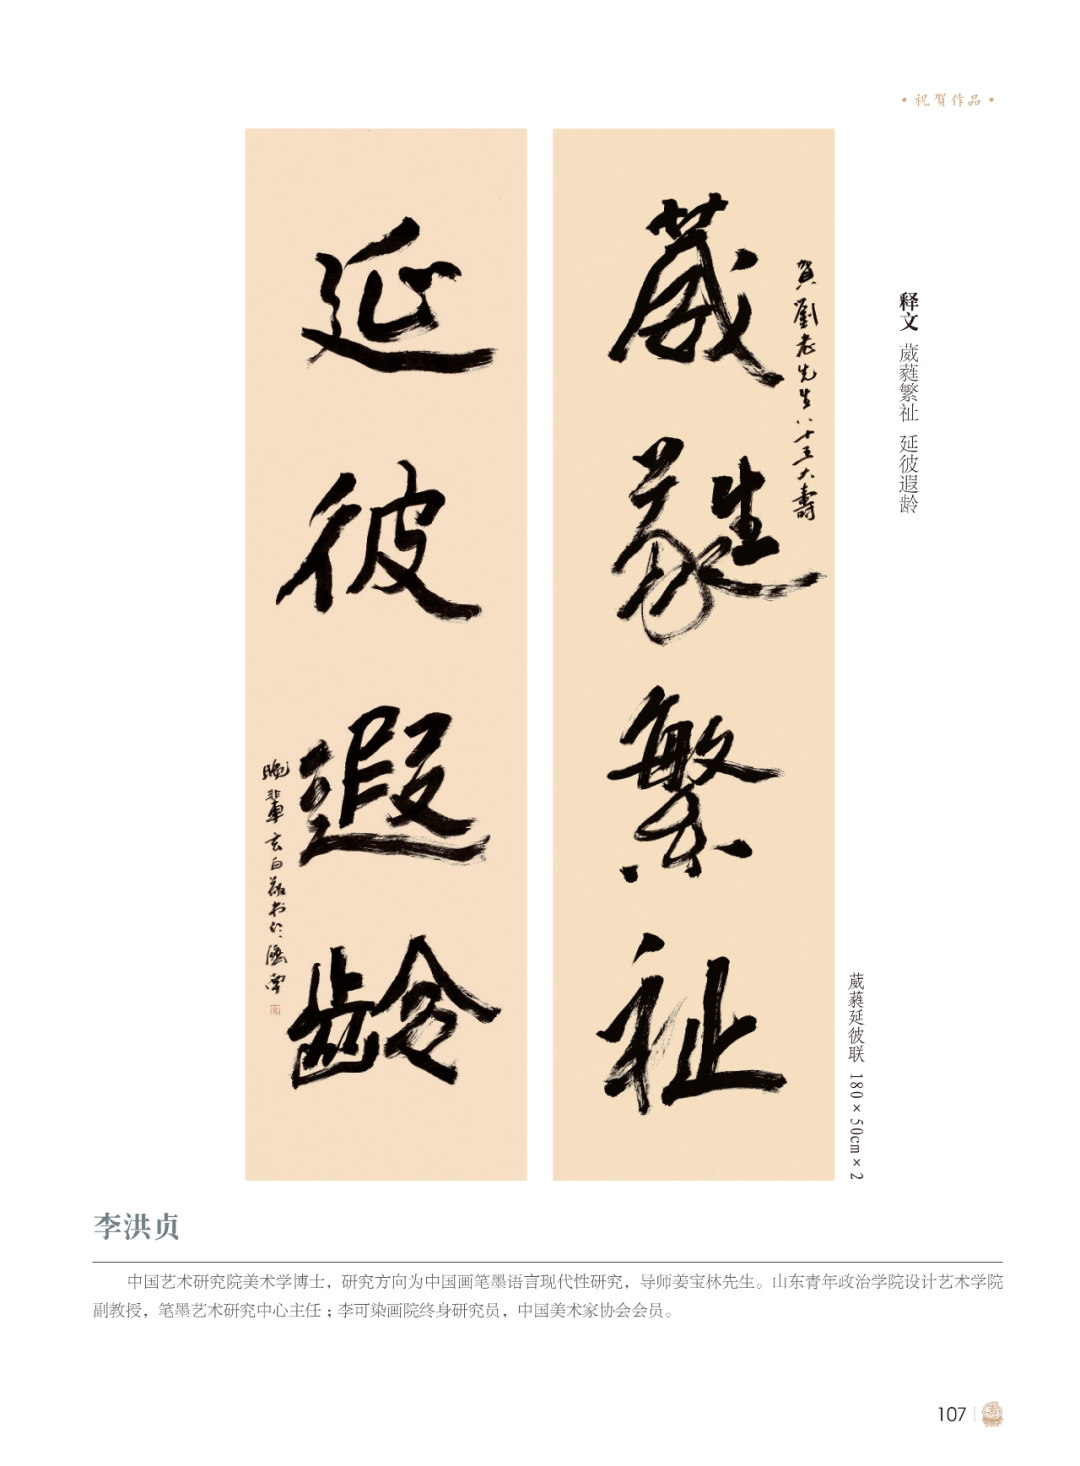 ·祝贺作品·
葳蕤繁祉
賀劉老先生八十五大壽
延彼遐龄
晚輩玄白敬书於濟南
释文 葳蕤繁祉 延彼遐龄
葳蕤延彼联 180×50cm×2
李洪贞
中国艺术研究院美术学博士，研究方向为中国画笔墨语言现代性研究，导师姜宝林先生。山东青年政治学院设计艺术学院
副教授，笔墨艺术研究中心主任；李可染画院终身研究员，中国美术家协会会员。
107